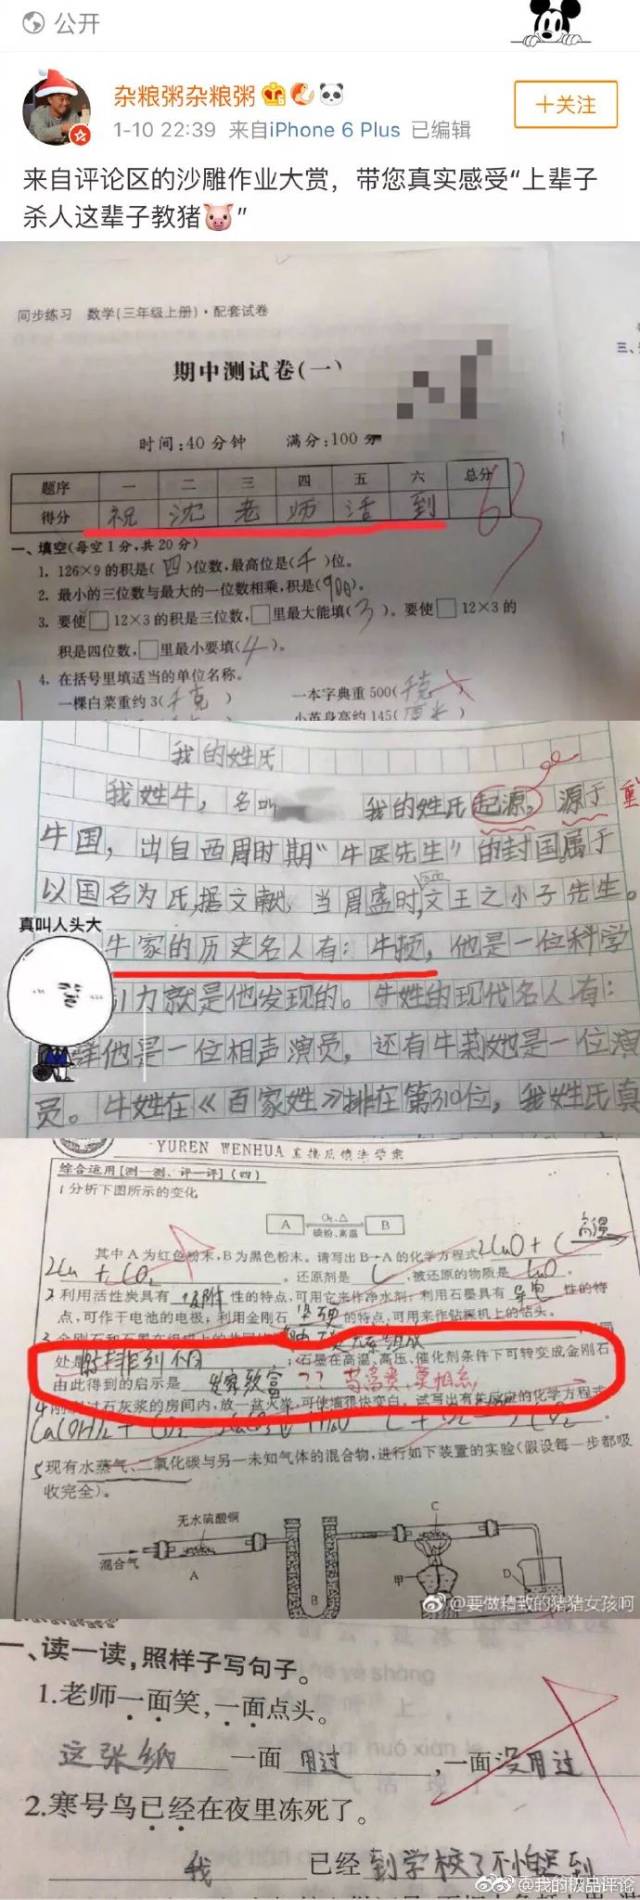 公开
杂粮粥杂粮粥
+关注
1-10 22:39 来自iPhone 6 Plus 已编辑
来自评论区的沙雕作业大赏，带您真实感受“上辈子
杀人这辈子教猪🐷”
同步练习 数学(三年级上册)·配套试卷
三、
期中测试卷(一)
时间:40分钟 满分:100分
题序 一 二 三 四 五 六 总分
得分 祝 沈 老 师 活 到 63
一、填空(每空1分,共20分)
1. 126×9的积是(四)位数,最高位是(千)位。
2. 最小的三位数与最大的一位数相乘,积是(900)。
3. 要使□12×3的积是三位数,□里最大能填(3)。要使□12×3的
积是四位数,□里最小要填(4)。
4. 在括号里填适当的单位名称。
一棵白菜重约3(千克) 一本字典重500(千克)
小英身高约145(厘米)
我的姓氏
我姓牛，名叫 我的姓氏起源。源于
牛国，出自西周时期“牛医先生”的封国属于
以国名为氏,据文献、当周盛时,文王之小子先生。
真叫人头大
牛家的历史名人有：牛顿，他是一位科学
引力就是他发现的。牛姓的现代名人有：
他是一位相声演员，还有牛莉她是一位演
员。牛姓在《百家姓》排在第310位，我姓氏真
YUREN WENHUA 直接反馈法学案
综合运用[测一测、评一评](四)
1分析下图所示的变化
A O₂,△ 碳粉、高温 B
其中A为红色粉末,B为黑色粉末。请写出B→A的化学方程式 2CuO + C 高温
2Cu + CO₂ 。还原剂是 C ,被还原的物质是 CuO 。
2 利用活性炭具有 吸附 性的特点,可用它来作净水剂；利用石墨具有 导电 性的特
点,可作干电池的电极；利用金刚石 坚硬 的特点,可用来作钻探机上的钻头。
处是 排列不同 ；石墨在高温、高压、催化剂条件下可转变成金刚石
由此得到的启示是 发家致富 ?? 当富贵,莫相忘
的房间内,放一盆火炭,可使墙很快变白。试写出有关反应的化学方程式
5 现有水蒸气、二氧化碳与另一未知气体的混合物,进行如下装置的实验(假设每一步都吸
收完全)。
无水硫酸铜
混合气
A
B
C
甲
D
@要做精致的猪猪女孩呵
一、读一读,照样子写句子。
1.老师一面笑,一面点头。
这张纸 一面 用过 ,一面 没用过
2.寒号鸟已经在夜里冻死了。
我 已经 到学校了不怕迟到
@我的极品评论